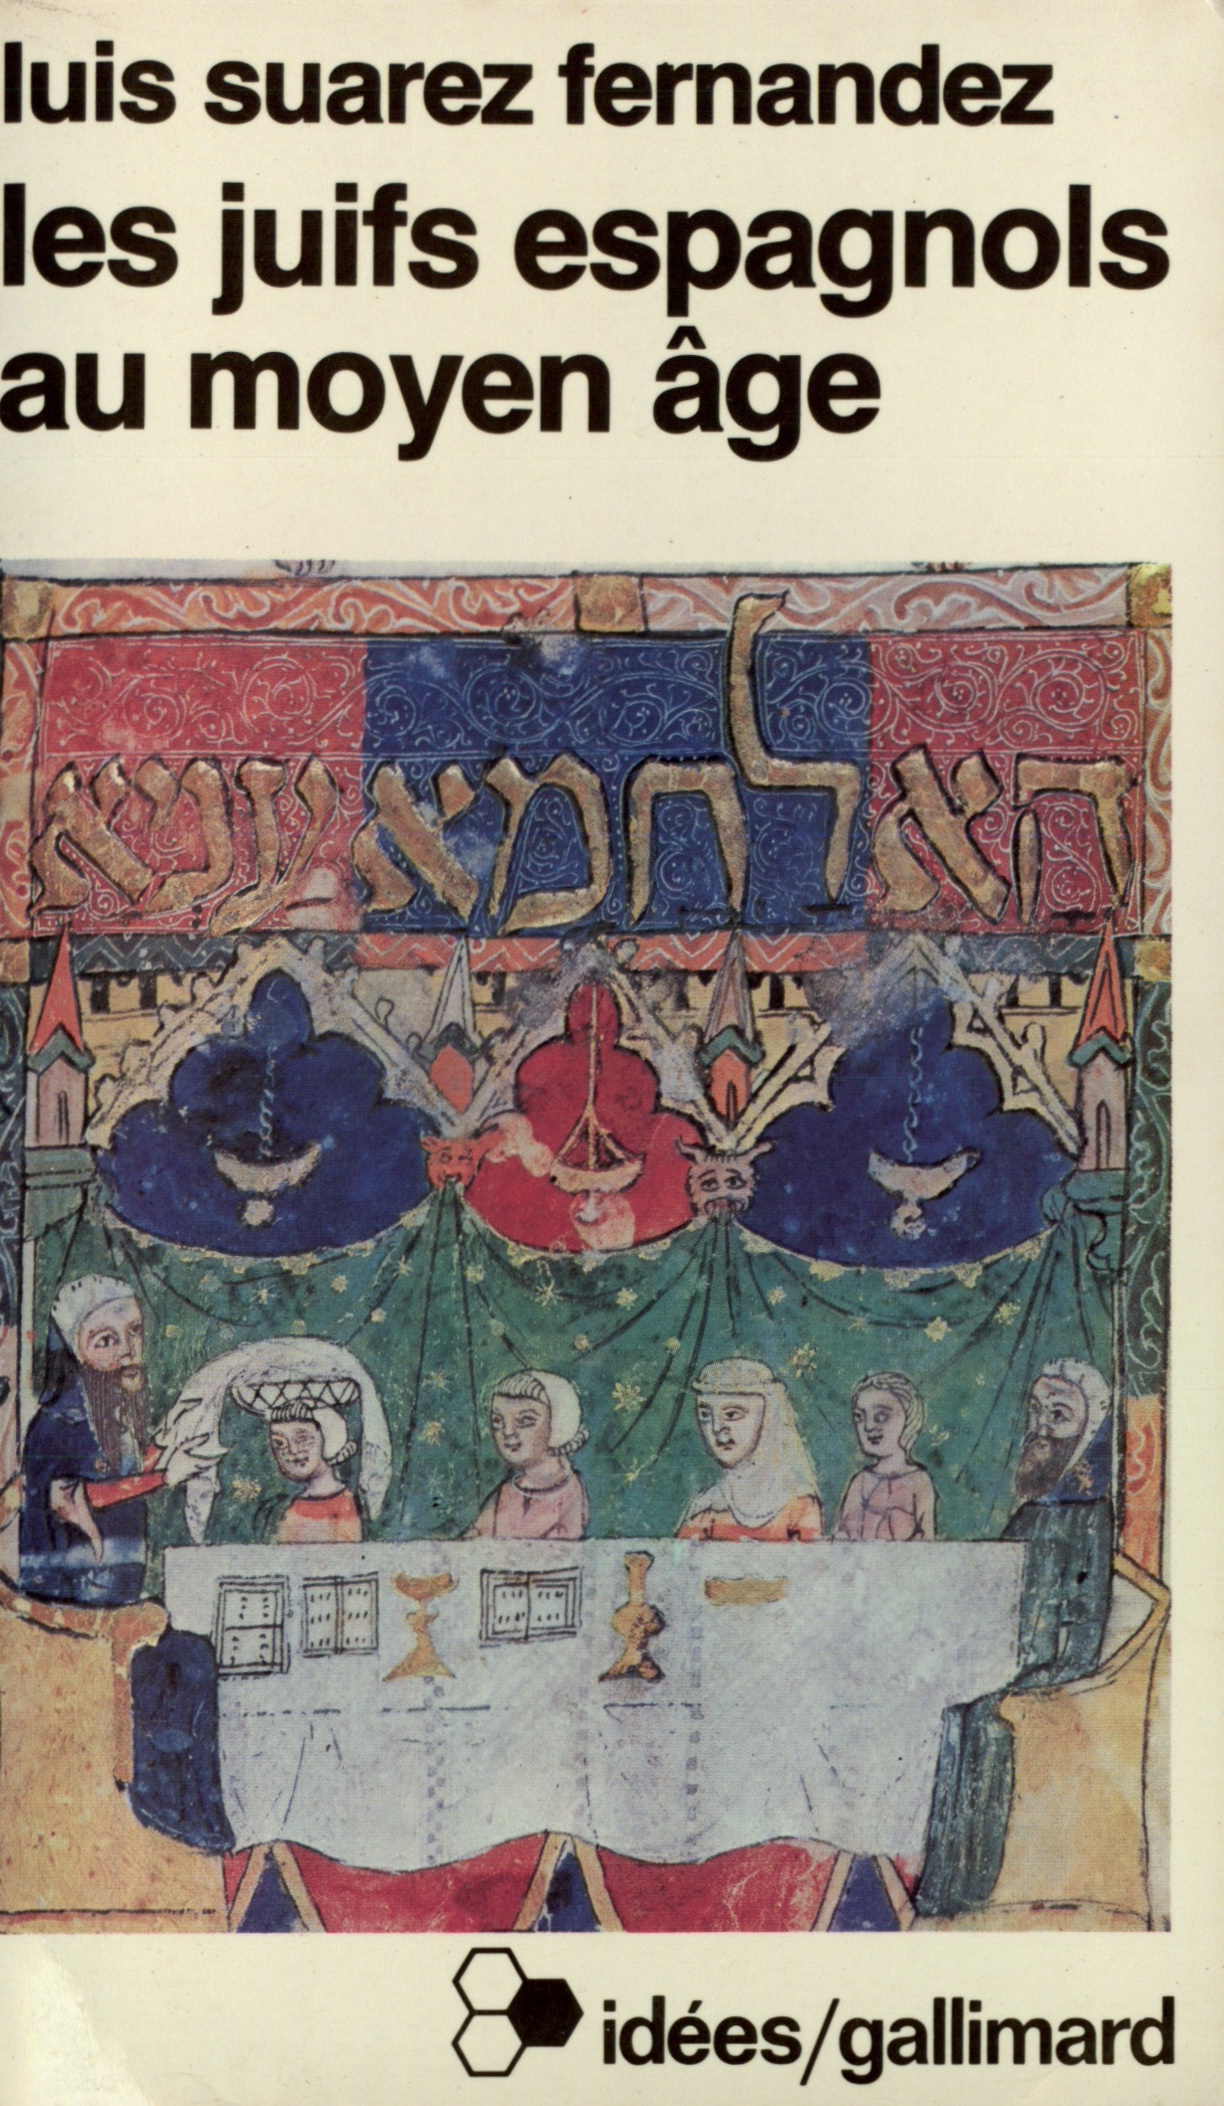 luis suarez fernandez
les juifs espagnols
au moyen âge
הא לחמא עניא
idées/gallimard